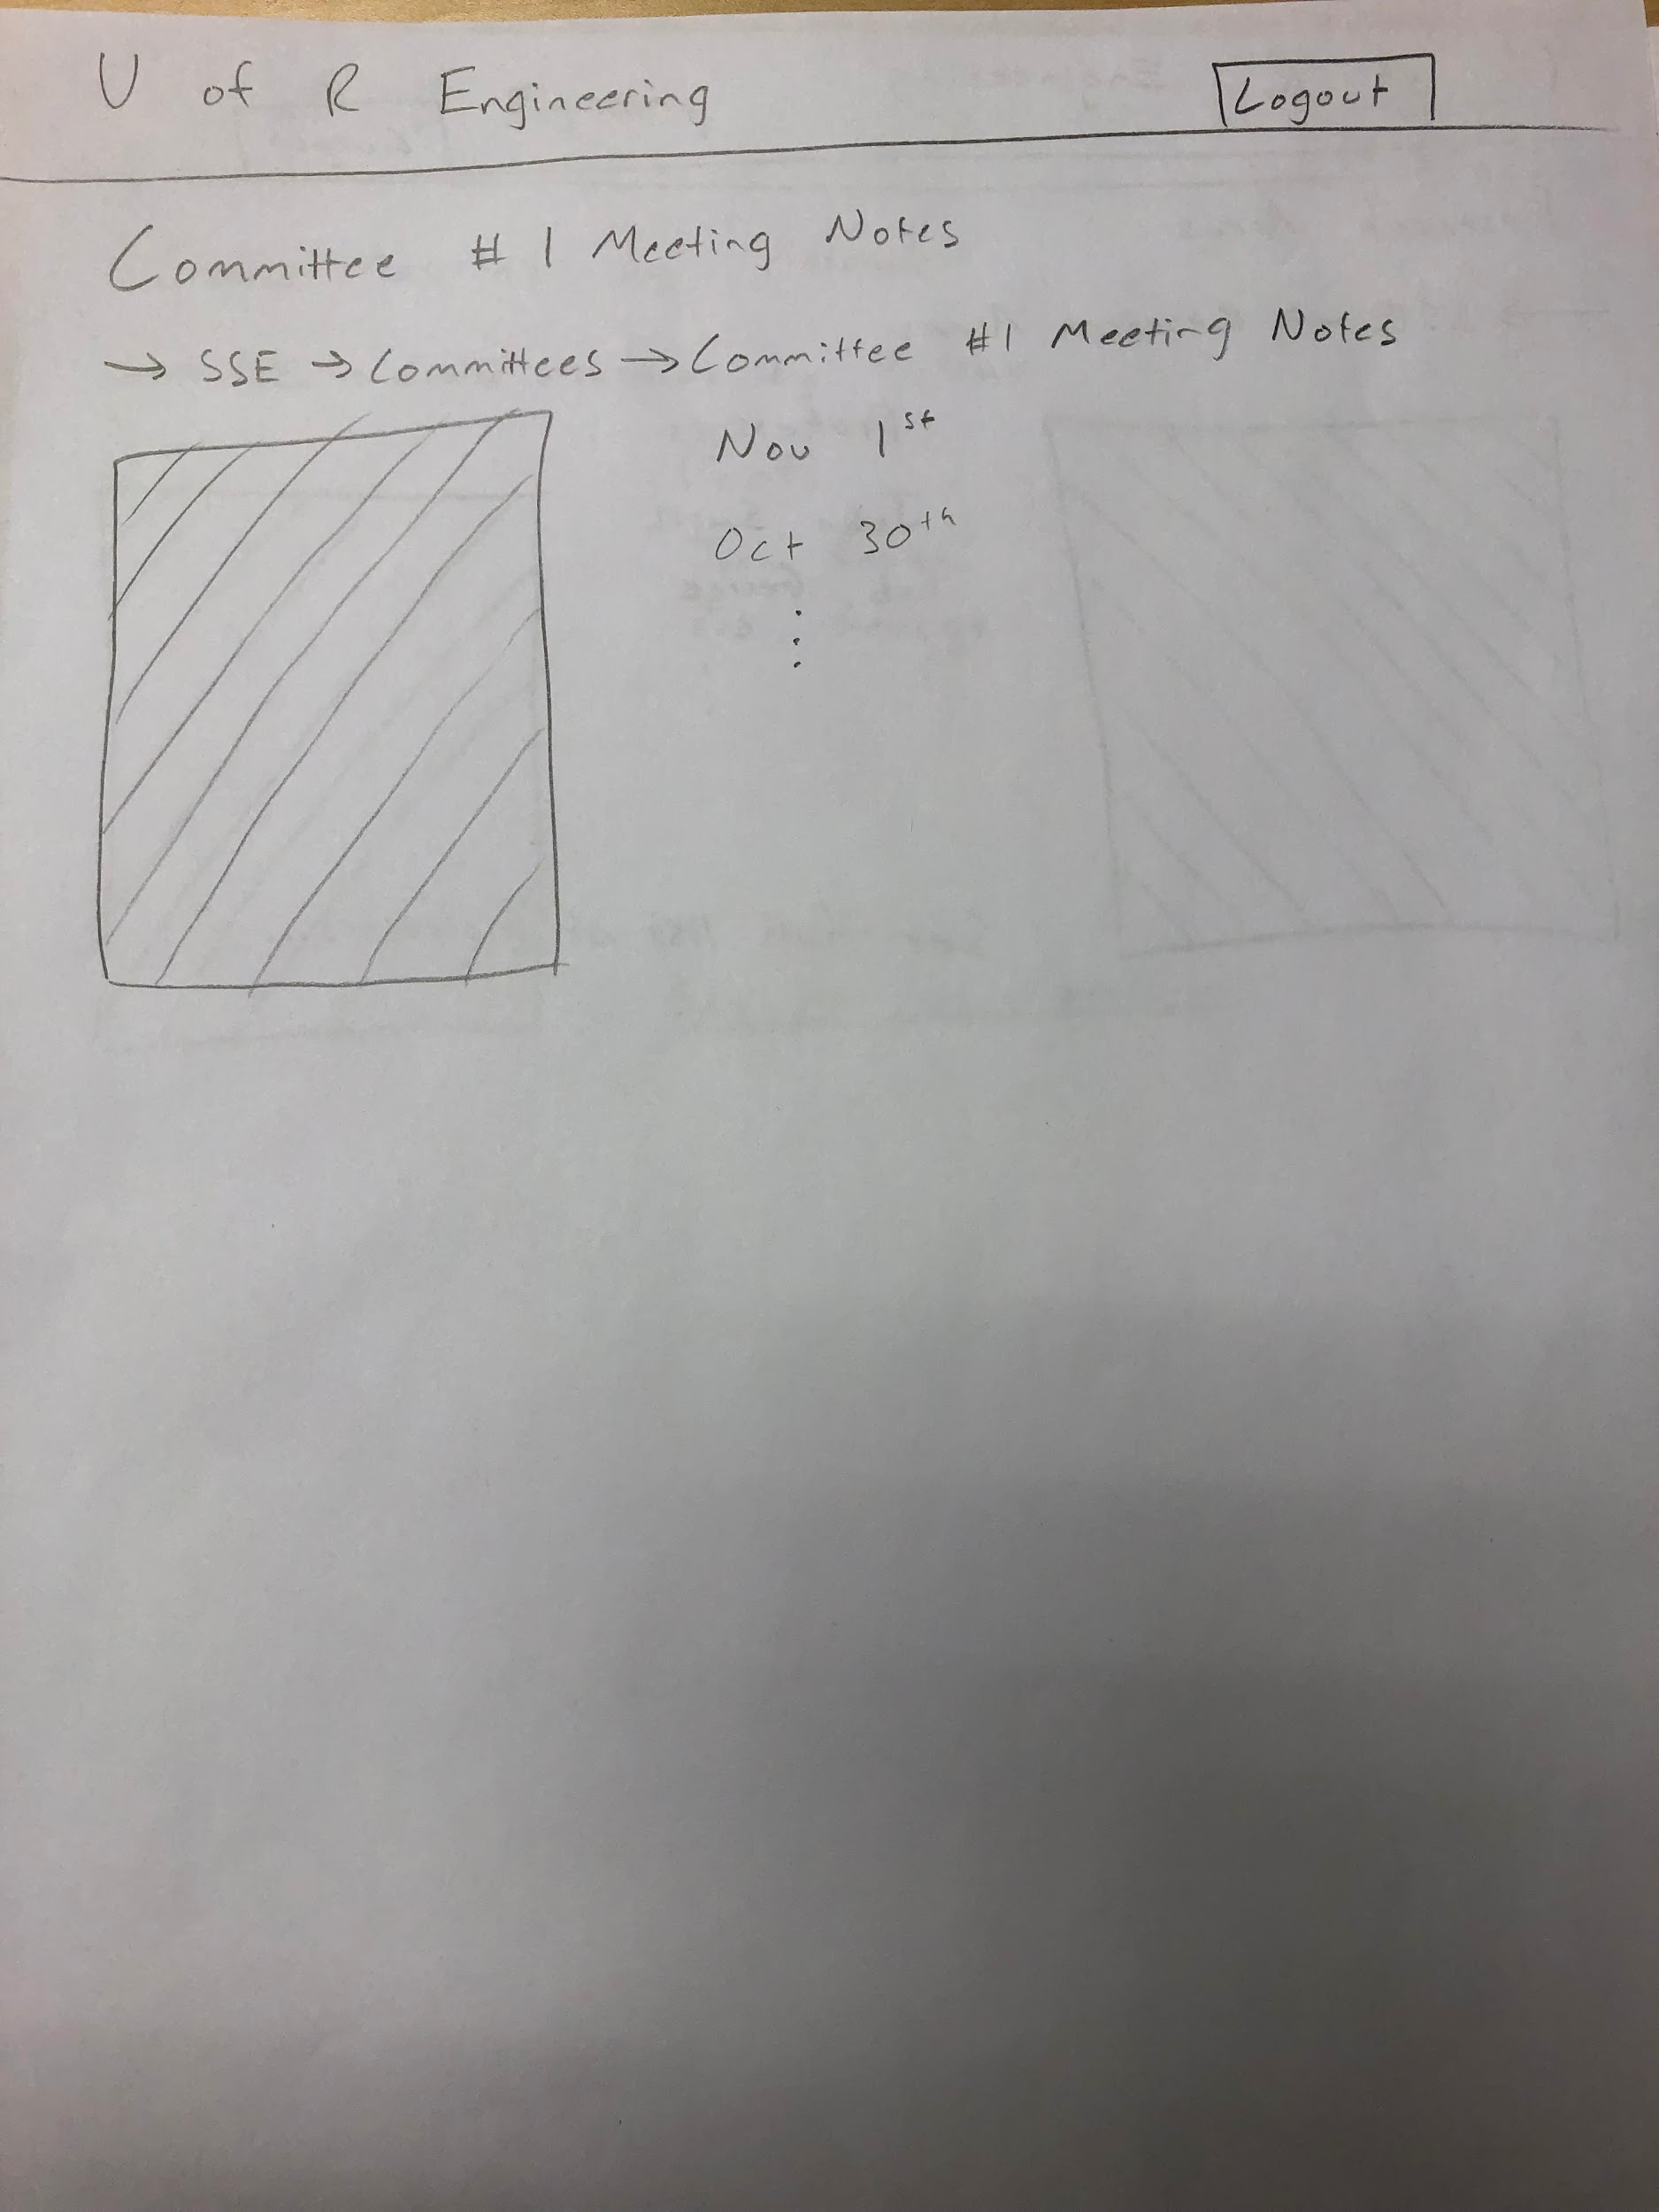 U of R Engineering
Logout
Committee #1 Meeting Notes
→ SSE → Committees → Committee #1 Meeting Notes
Nov 1st
Oct 30th
⋮